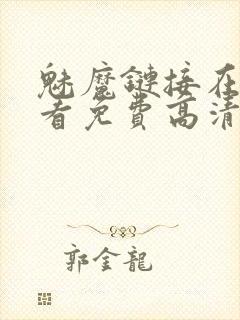 魅魔鏈接在
看免費高清
郭金龍